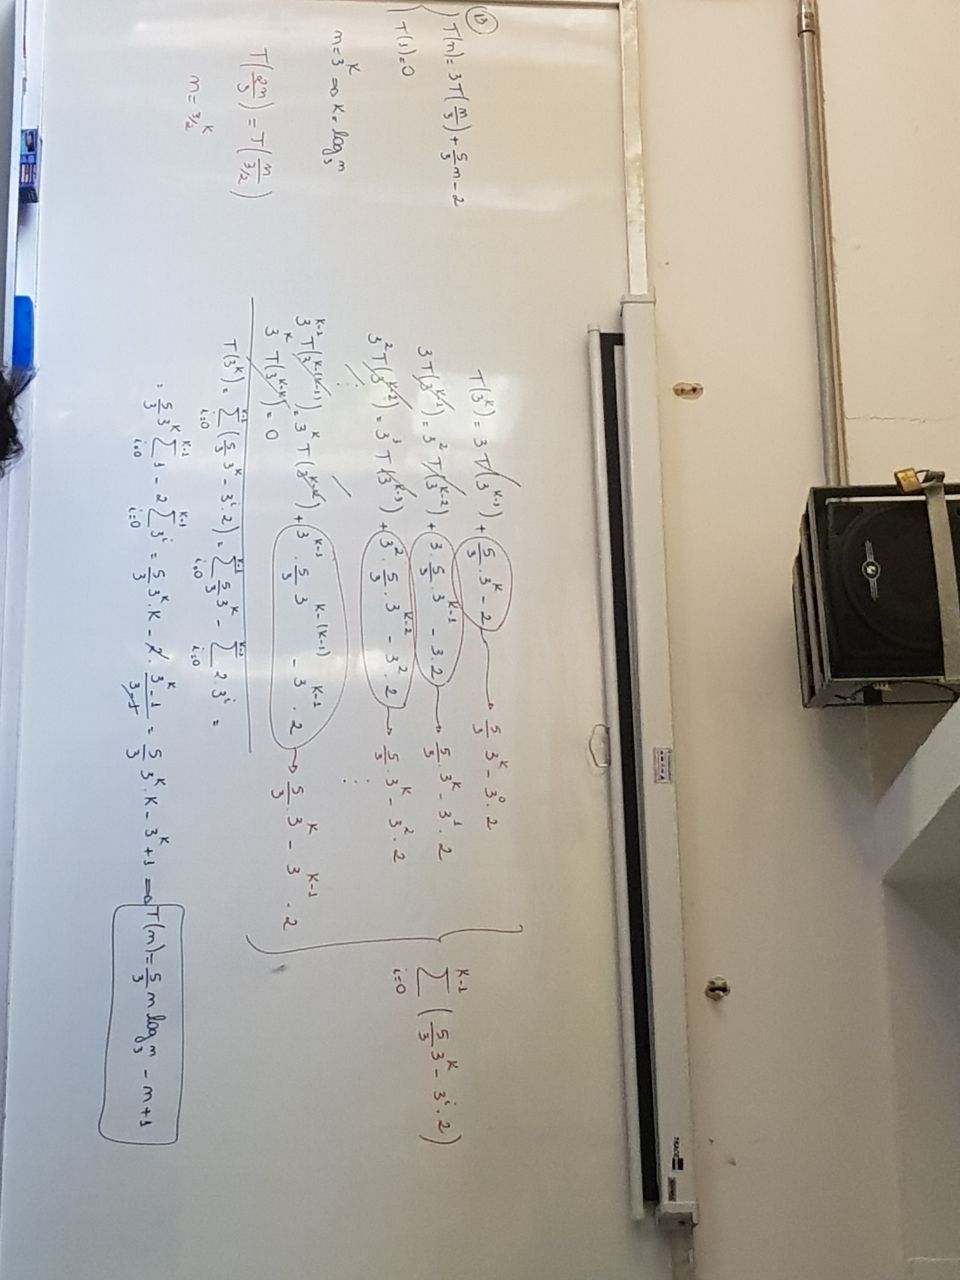 (B)
T(n) = 3T(n/3) + 5/3 n - 2
T(1) = 0
n = 3^K ⇒ K = log_3 n
T(2n/3) = T(n/(3/2))
n = 3/2^K
T(3^K) = 3T(3^(K-1)) + 5/3 · 3^K - 2 → 5/3 · 3^K - 3^0 · 2
3T(3^(K-1)) = 3^2 T(3^(K-2)) + 3 · 5/3 · 3^(K-1) - 3 · 2 → 5/3 · 3^K - 3^1 · 2
3^2 T(3^(K-2)) = 3^3 T(3^(K-3)) + 3^2 · 5/3 · 3^(K-2) - 3^2 · 2 → 5/3 · 3^K - 3^2 · 2
⋮ ⋮
3^(K-1) T(3^(K-(K-1))) = 3^K T(3^(K-K)) + 3^(K-1) · 5/3 · 3^(K-(K-1)) - 3^(K-1) · 2 → 5/3 · 3^K - 3^(K-1) · 2
3^K T(3^(K-K)) = 0
∑_{i=0}^{K-1} (5/3 3^K - 3^i · 2)
T(3^K) = ∑_{i=0}^{K-1} (5/3 3^K - 3^i · 2) = ∑_{i=0}^{K-1} 5/3 3^K - ∑_{i=0}^{K-1} 2 · 3^i =
= 5/3 3^K ∑_{i=0}^{K-1} 1 - 2 ∑_{i=0}^{K-1} 3^i = 5/3 3^K · K - 2 · (3^K - 1)/(3 - 1) = 5/3 3^K · K - 3^K + 1 ⇒ T(n) = 5/3 n log_3 n - n + 1